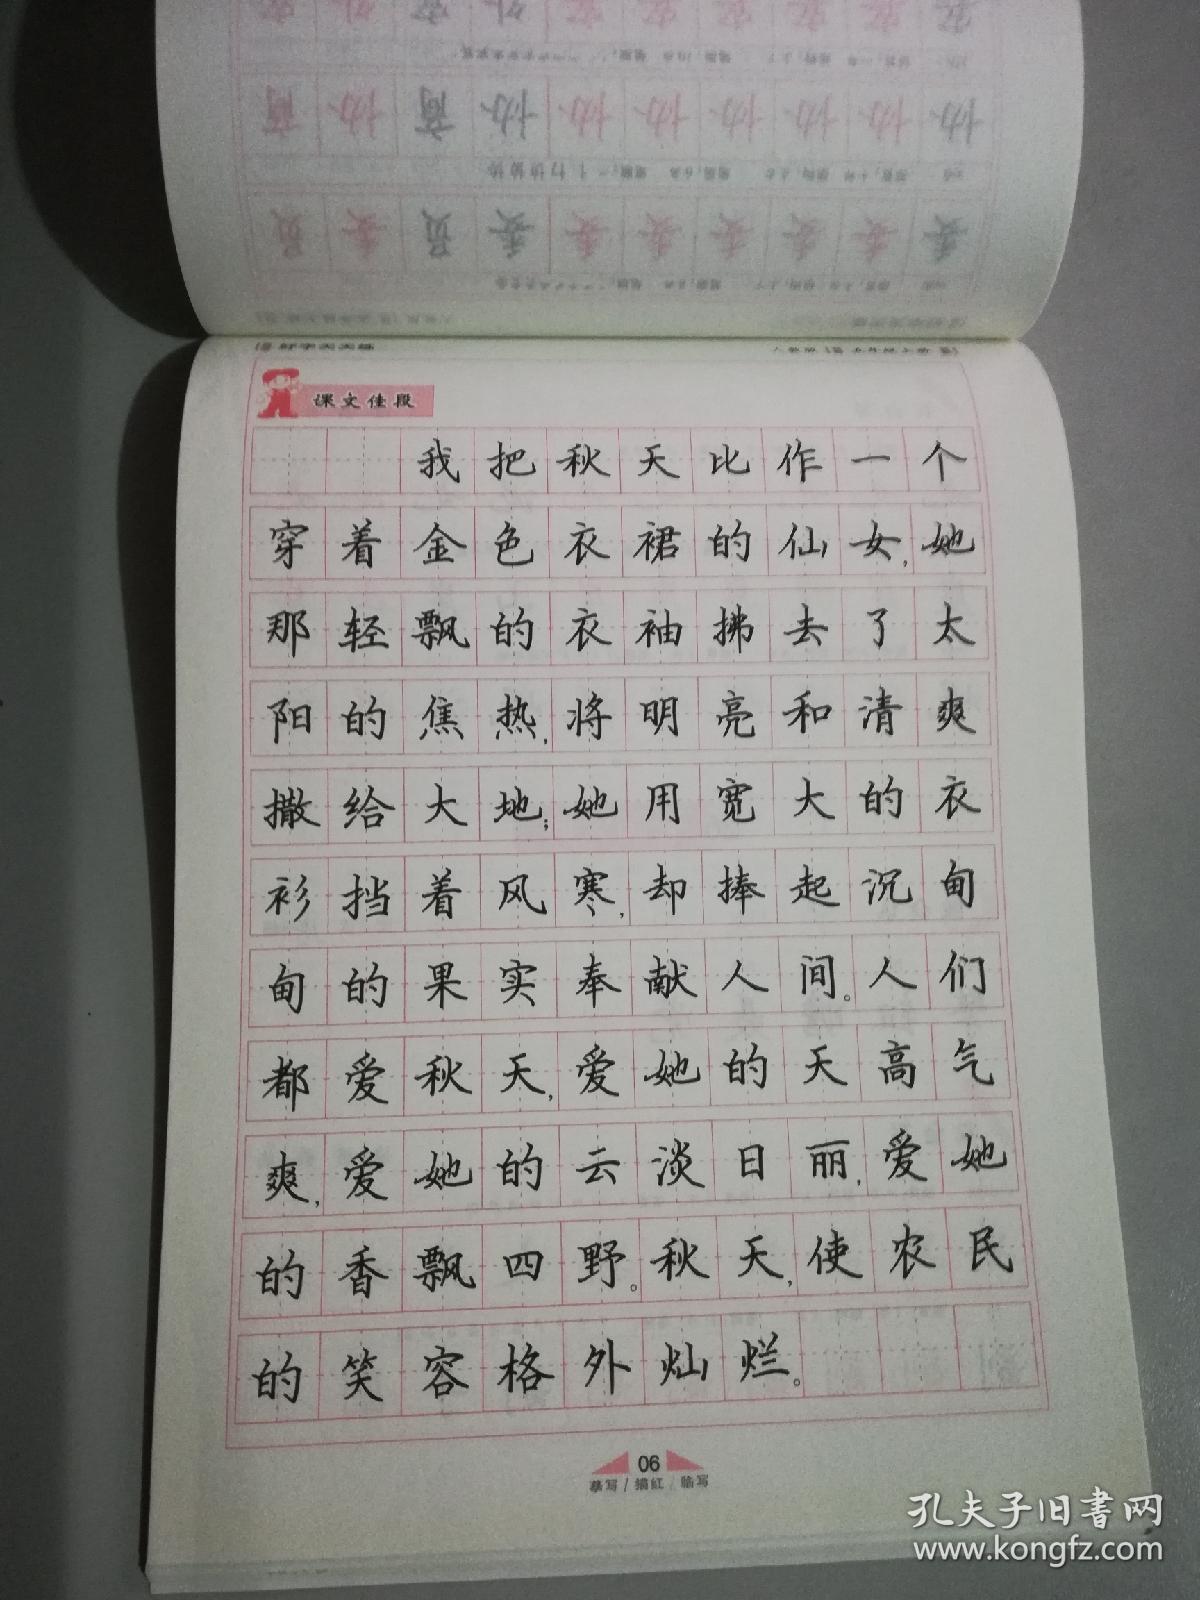 课文佳段
我把秋天比作一个
穿着金色衣裙的仙女,她
那轻飘的衣袖拂去了太
阳的焦热,将明亮和清爽
撒给大地;她用宽大的衣
衫挡着风寒,却捧起沉甸
甸的果实奉献人间。人们
都爱秋天,爱她的天高气
爽,爱她的云淡日丽,爱她
的香飘四野。秋天,使农民
的笑容格外灿烂。
06
摹写/描红/临写
孔夫子旧书网
www.kongfz.com